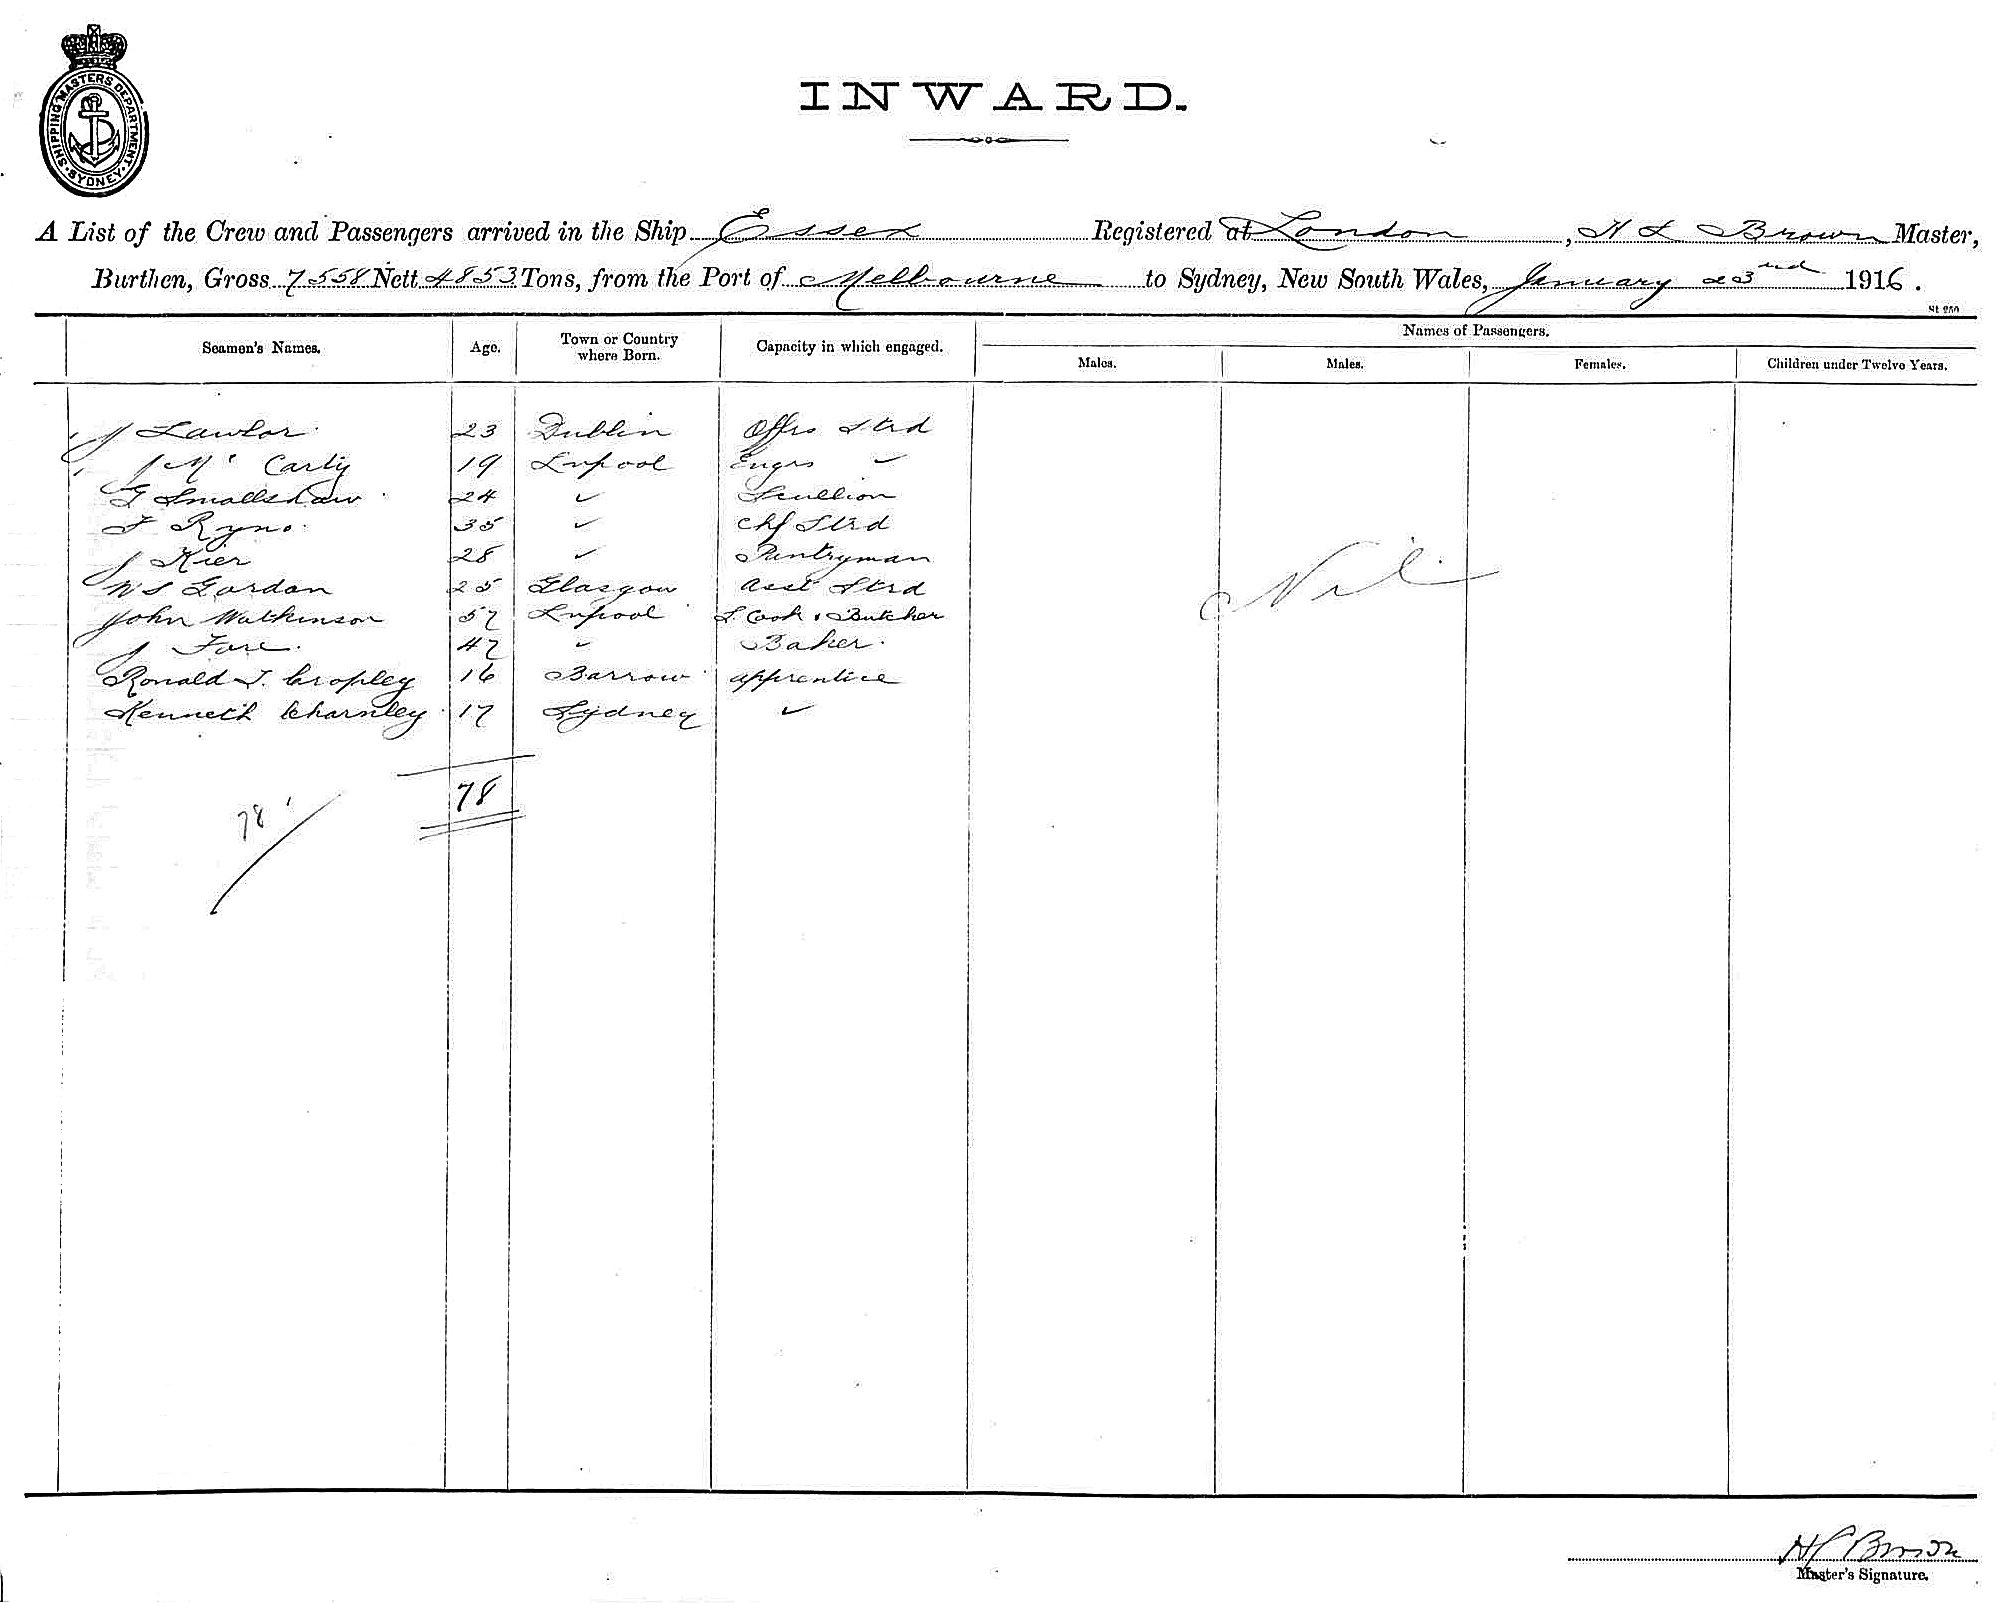 SHIPPING MASTERS DEPARTMENT. SYDNEY
INWARD.
A List of the Crew and Passengers arrived in the Ship Essex Registered at London, H L Brown Master,
Burthen, Gross 7558 Nett 4853 Tons, from the Port of Melbourne to Sydney, New South Wales, January 23rd 1916.
St 250
Names of Passengers.
Seamen's Names. Age. Town or Country where Born. Capacity in which engaged. Males. Males. Females. Children under Twelve Years.
J Lawlor 23 Dublin Offrs Strd
J Mc Carty 19 Lvpool Engrs "
G Smallshaw 24 " Scullion
F Ryno 35 " Chf Strd
J Kier 28 " Pantryman
W S Gordon 25 Glasgow Asst Strd
John Watkinson 57 Lvpool S. Cook & Butcher
J Fare 47 " Baker
Ronald T. Cropley 16 Barrow apprentice
Kenneth Charnley 17 Sydney "
Nil
78
78
H L Brown
Master's Signature.